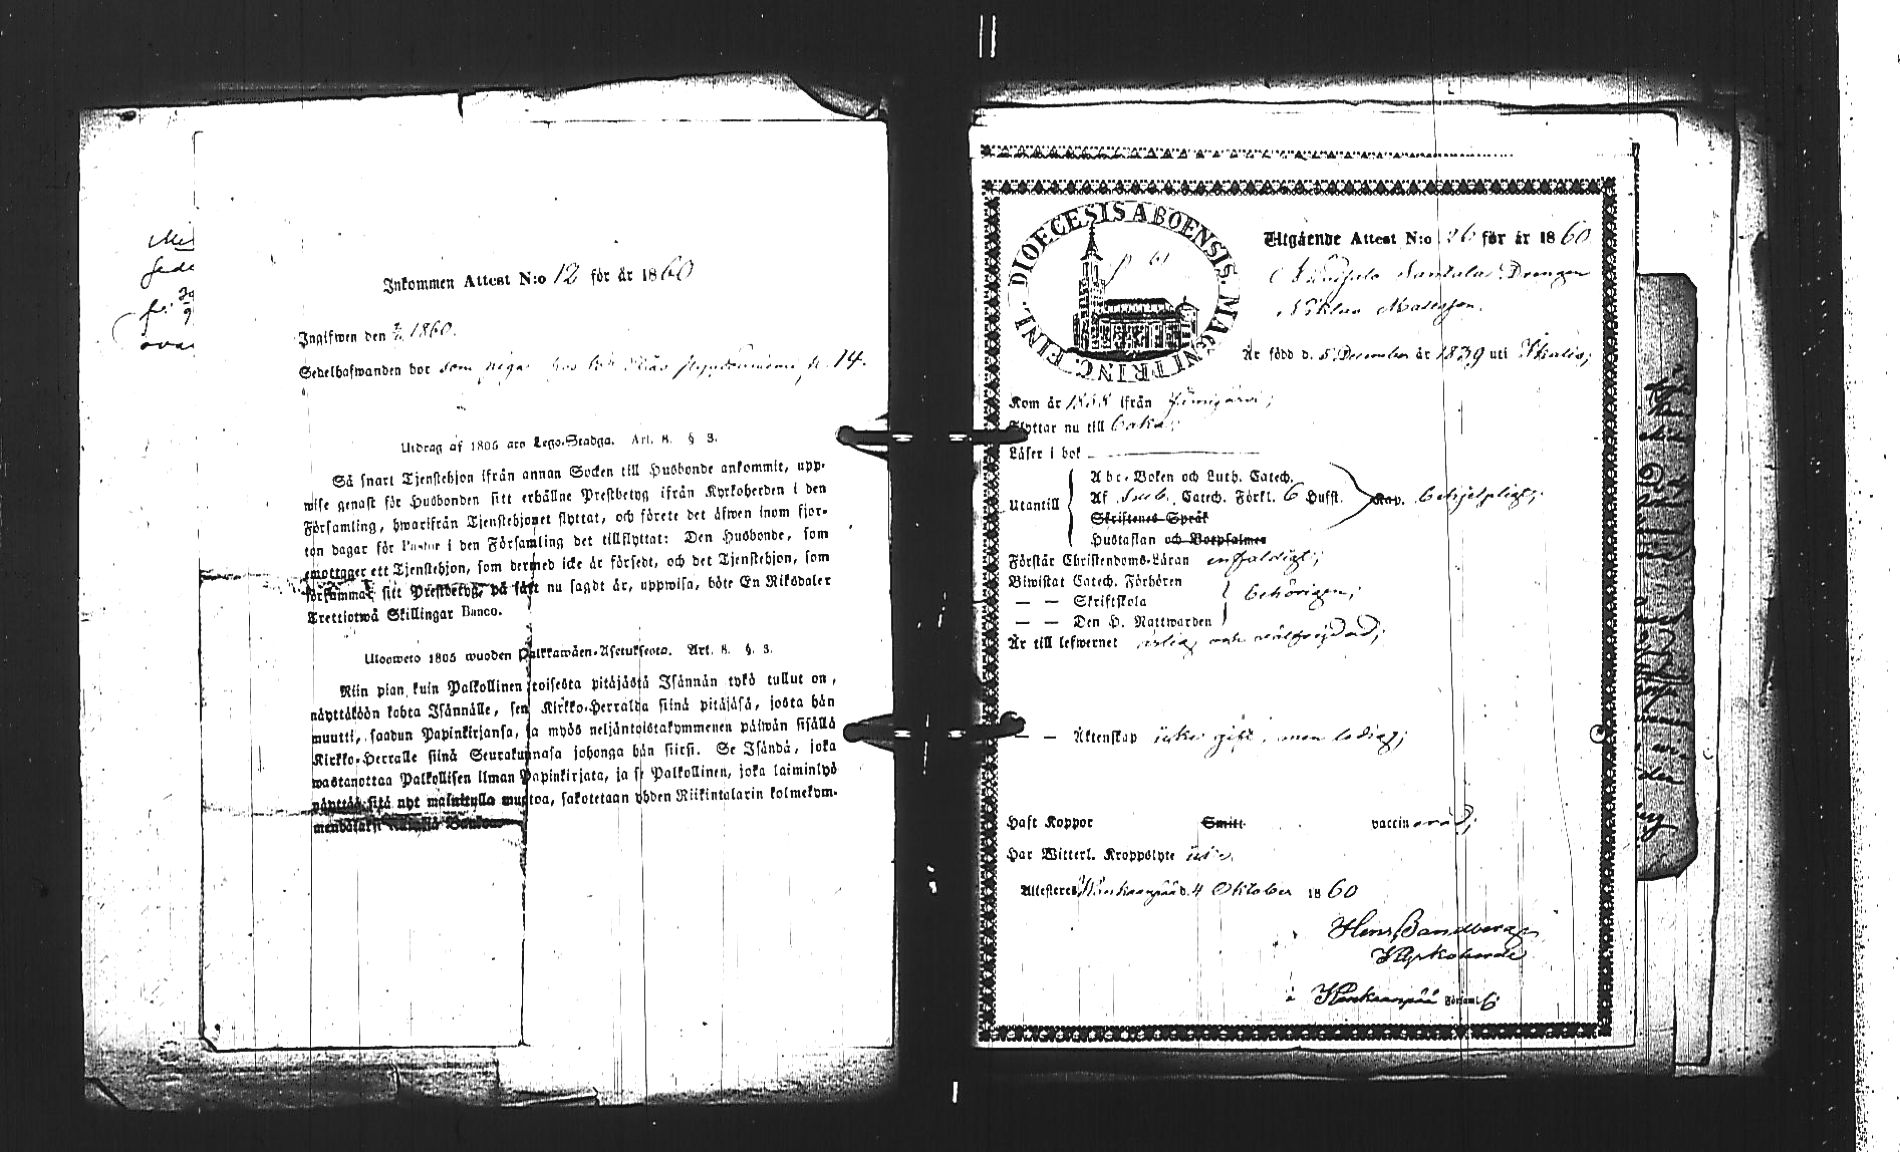 Inkommen Attest N:o 12 för år 1860
Ingifwen den 1860.
Sedelhafwanden bor som piga hos 14.
Utdrag af 1805 års Lego-Stadga. Art. 8. § 3.
Så snart Tjenstehjon ifrån annan Socken till Husbonde ankommit, upp-
wise genast för Husbonden sitt erhållne Prestbetyg ifrån Kyrkoherden i den
Församling, hwarifrån Tjenstehjonet flyttat, och förete det äfwen inom fjor-
ton dagar för Pastor i den Församling det tillflyttat: Den Husbonde, som
emottager ett Tjenstehjon, som dermed icke är försedt, och det Tjenstehjon, som
försummat sitt Prestbetyg, på sätt nu sagdt är, uppwisa, böte En Riksdaler
Trettiotwå Skillingar Banco.
Ulosweto 1805 wuoden Palkkawäen-Asetuksesta. Art. 8. §. 3.
Niin pian kuin Palkollinen toisesta pitäjästä Isännän tykö tullut on,
näyttäköön kohta Isännälle, sen Kirkko-Herralda siinä pitäjäsä, josta hän
muutti, saadun Papinkirjansa, ja myös neljäntoistakymmenen päiwän sisällä
Kirkko-Herralle siinä Seurakunnasa johonga hän siirsi. Se Isändä, joka
wastanottaa Palkollisen ilman Papinkirjata, ja se Palkollinen, joka laiminlyö
näyttää sitä nyt mainitulla muotoa, sakotetaan yhden Riikintalarin kolmekym-
mendäkaksi
FINL. DIOECESIS ABOENSIS. MAGNI PRINC.
Utgående Attest N:o 26 för år 1860
Santala Drengen
Niklas Mattsson.
Är född d. 5 December år 1839 uti Ikalis;
Kom år 1858 ifrån Jämijärvi;
Flyttar nu till
Läser i bok
Utantill
Abc-Boken och Luth. Catech.
Af Catech. Förkl. 6 Hufst.
Skriftenes Språk
Hustaflan och Botpsalmer
Kap. behjelpligt;
Förstår Christendoms-Läran enfaldigt;
Biwistat Catech. Förhören
— — Skriftskola
— — Den H. Nattwarden
behörigen;
Är till lefwernet ärlig och välfrejdad;
— — Äktenskap icke gift, men ledig;
Haft Koppor Smitt vaccinerad;
Har Witterl. Kroppslyte icke.
Attesteras Kankaanpää d. 4 Oktober 1860
Hens Sandberg
Kyrkoherde
i Kankaanpää Församl.